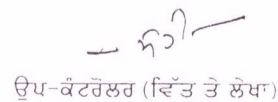 ਉਪ-ਕੰਟਰੋਲਰ (ਵਿੱਤ ਤੇ ਲੇਖਾ)